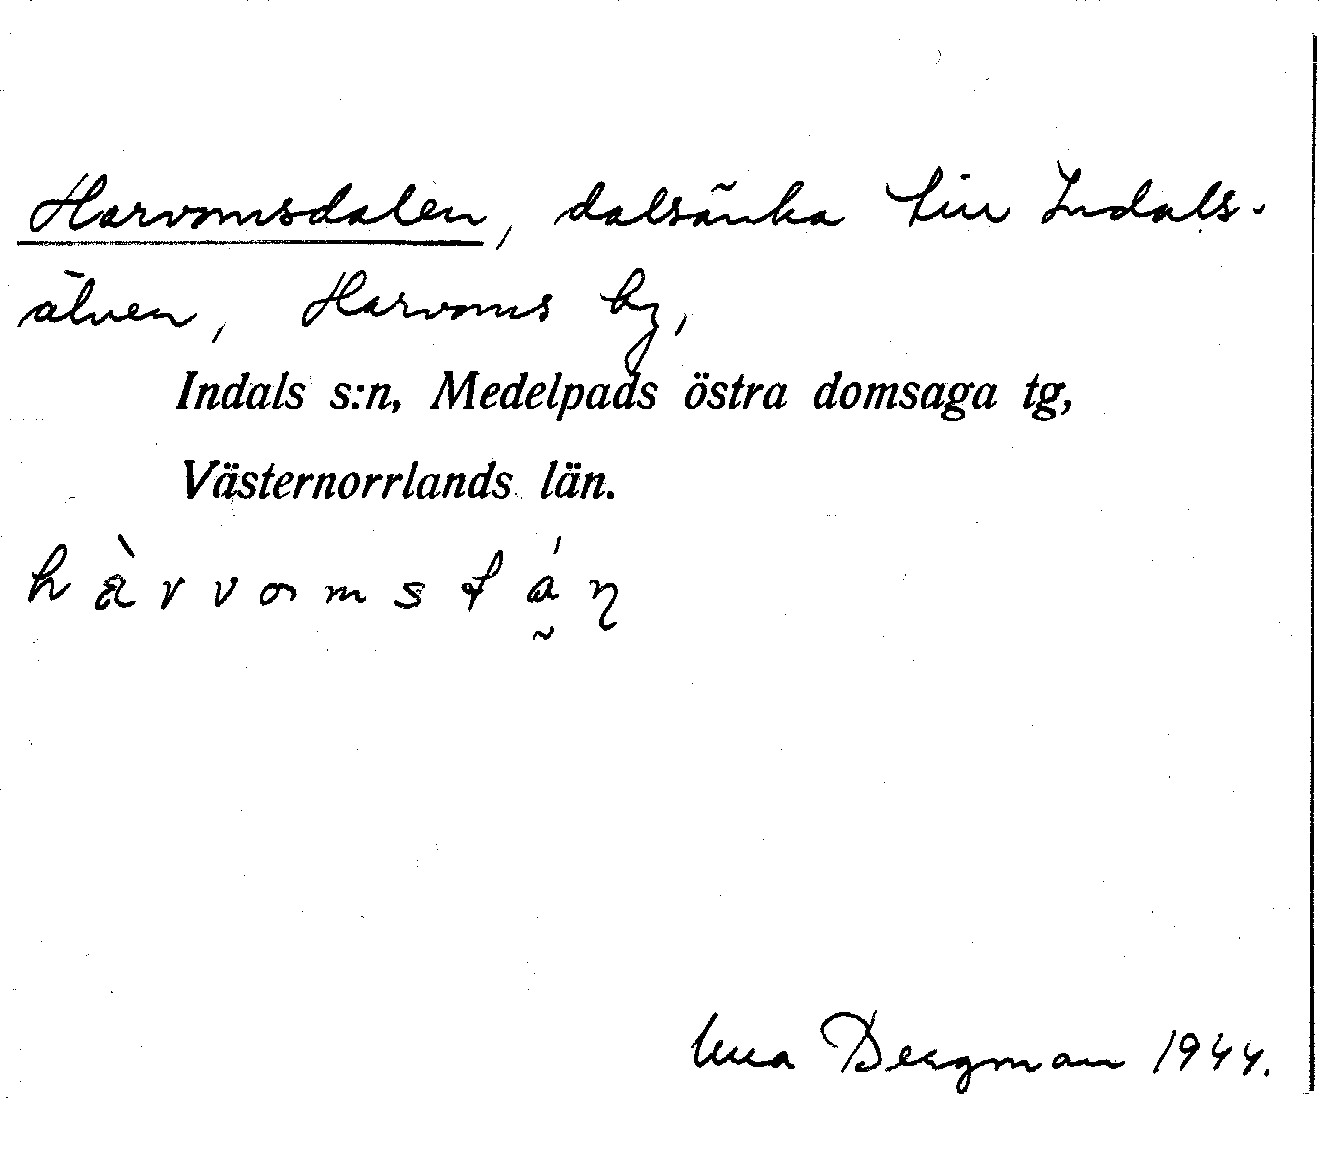 Harvomsdalen, dalsänka till Indals-
älven, Harvoms by,
Indals s:n, Medelpads östra domsaga tg,
Västernorrlands län.
Bergman 1944.